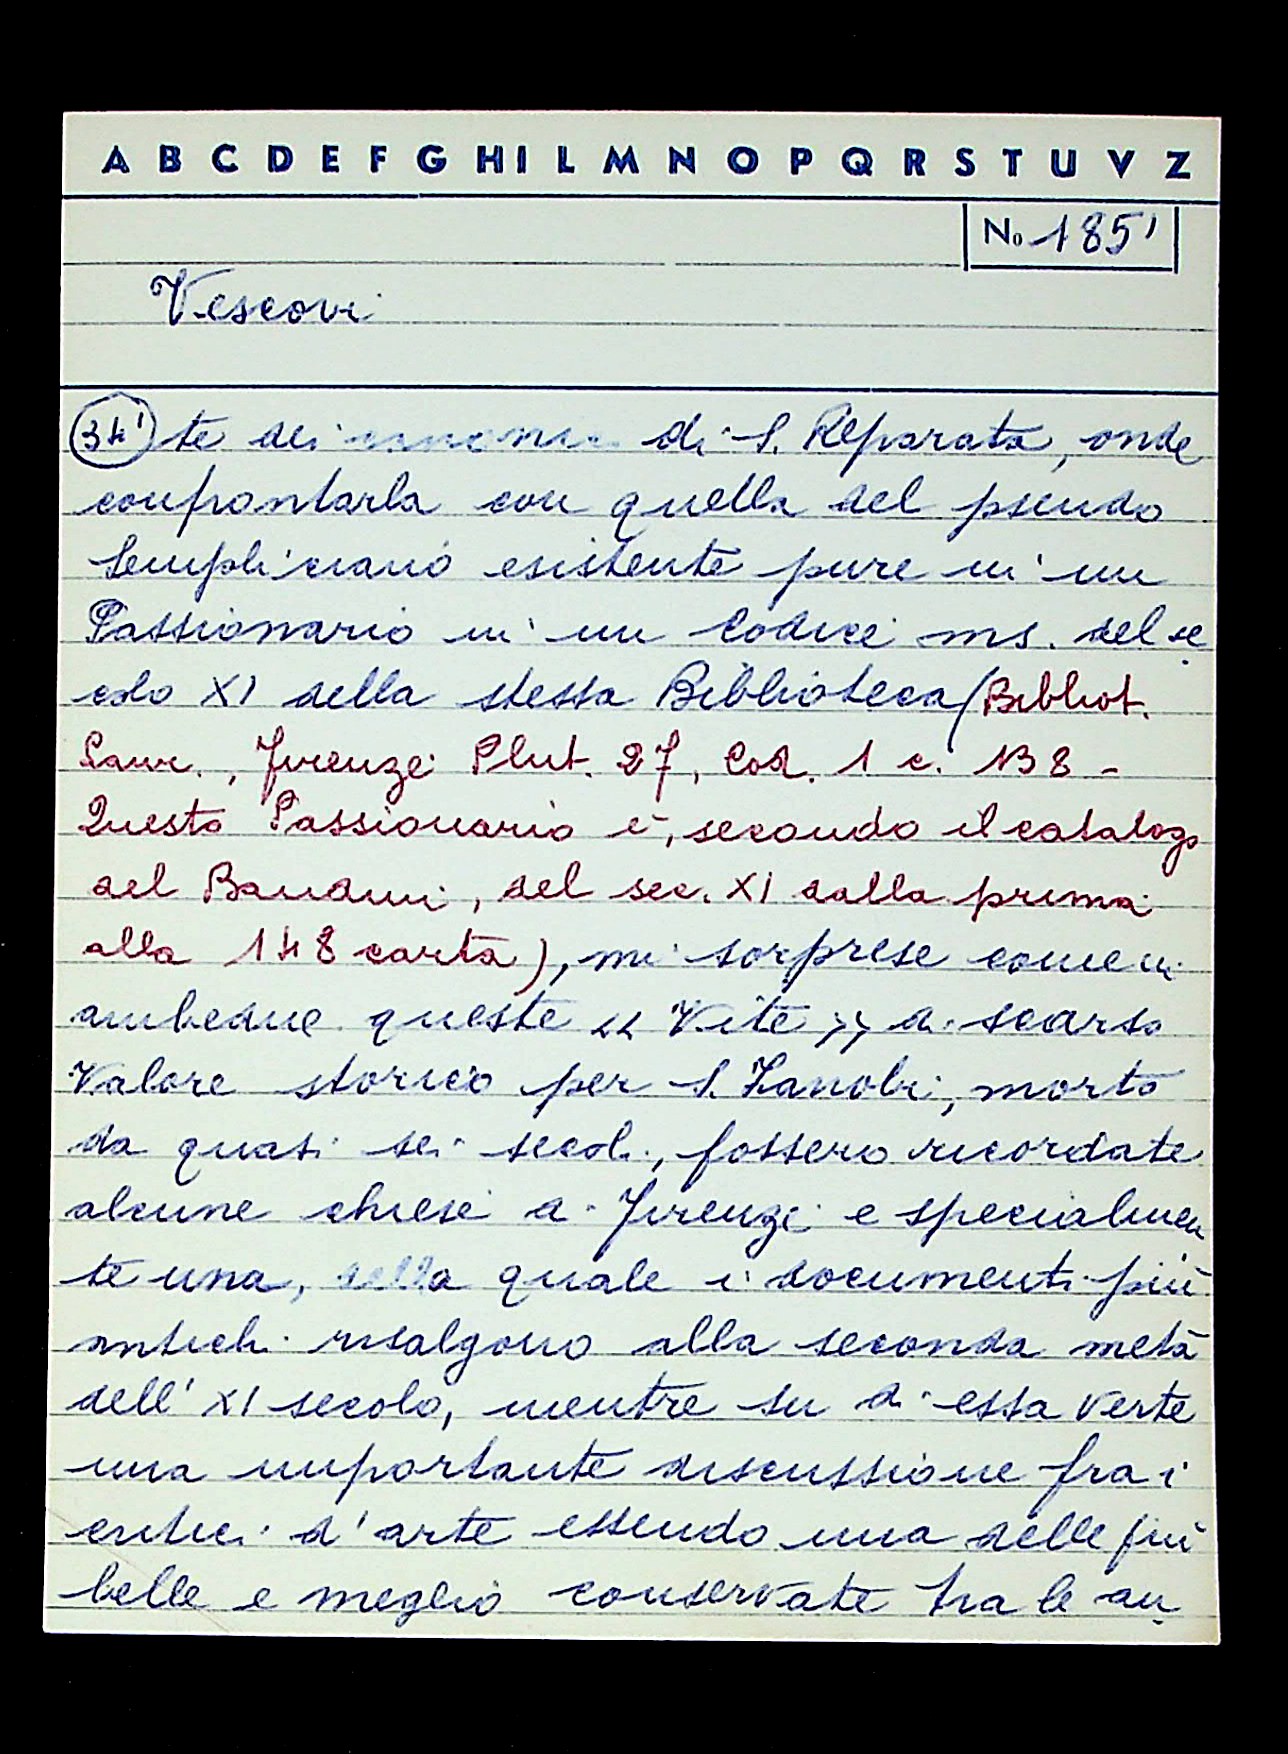 A B C D E F G H I L M N O P Q R S T U V Z
No 185'
Vescovi
34' te dei canonici di S. Reparata, onde
confrontarla con quella del pseudo
Simpliciano esistente pure in un
Passionario in un Codice ms. del se
colo XI della stessa Biblioteca (Bibliot.
Laur., Firenze Plut. 27, Cod. 1 c. 138 -
Questo Passionario è, secondo il catalogo
del Bandini, del sec. XI dalla prima
alla 148 carta), mi sorprese come in
ambedue queste « Vite » di scarso
valore storico per S. Zanobi, morto
da quasi sei secoli, fossero ricordate
alcune chiese di Firenze e specialmen
te una, della quale i documenti più
antichi risalgono alla seconda metà
dell'XI secolo, mentre su di essa verte
una importante discussione fra i
critici d'arte essendo una delle più
belle e meglio conservate tra le an